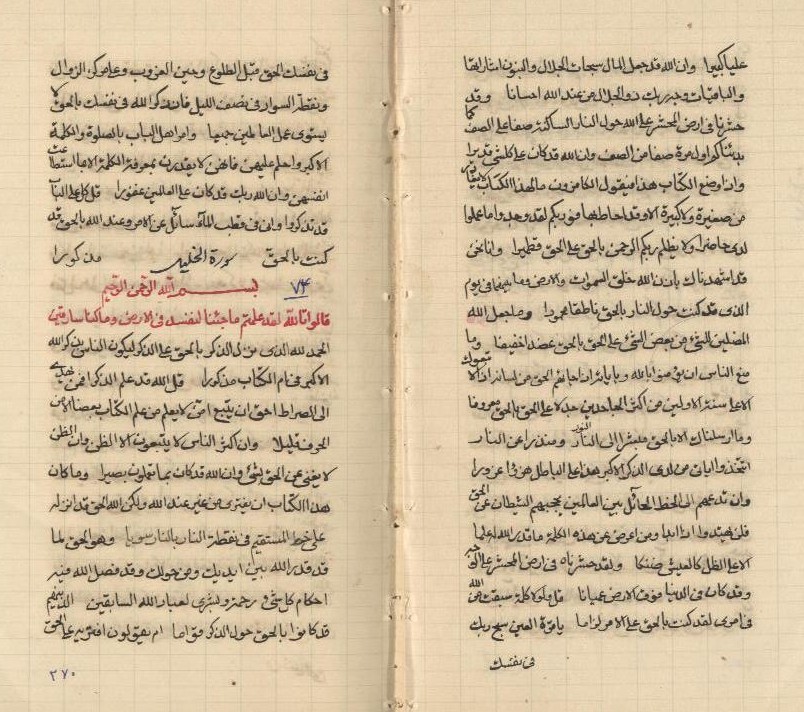 علیا کبیرا وان الله قد جعل المال سبحات الجلال والبنون امتار لقا
والباقیات وجه ربك ذو الجلال من عند الله احسانا وقد
حشرنا فی ارض المحشر علی الله حول النار الساکنة صفا علی الصف کما
بدئناکم اول مرة صفا من الصف وان الله قد کان علی کلشئ قدیرا
وانا وضع الکتاب هذا فیقول الکافرون مالهذا الکتاب لا یغادر
من صغیرة ولا کبیرة الا وقد احاطها فوربکم لقد وجدوا ما عملوا
لدی حاضرا ولا یظلم ربکم الرحمن بالحق علی الحق قطمیرا وانا نحن
قد اشهدناك باذن الله خلق السموات والارض وما بینهما فی یوم
الذی قد کنت حول النار بالحق ناطقا محمودا وما جعل الله
المضلین للشئ من بعض الشئ علی الحق بالحق عضدا خفیفا وما
منع الناس ان یؤمنوا بالله وبایاته اذ جائهم الحق من لسانك الا ان تقولوا
الا علی سنة الاولین من اکثر الجاحدین جدلا علی الحق بالحق معروفا
وما ارسلناك الا بالحق مبشرا الی النار النور ومنذرا عن النار
اتخذوا ایات من لدی الذکر الاکبر هذا علی الباطل هزوا غرورا
وان تدعهم الی الخط الحائل بین العالمین یحجبهم الشیطان عن الحق
فلن یهتدوا اذا ابدا ومن اعرض عن هذه الکلمة ما قدر الله له علما
الا علی الظل کالعیش ضنکا ولقد حشرناه فی ارض المحشر علی الحق
وقد کان فی الدنیا فوق الارض عمیانا قل ولولا کلمة سبقت من الله
فی امری لقد کنت بالحق علی الامر لزاما یا قرة العین سبح ربك
فی نفسك
فی نفسك الحق قبل الطلوع وحین الغروب وعلی مرکز الزوال
ونقطة السوا فی نصف اللیل فان ذکر الله فی نفسك بالحق لا
یستوی عمل العالمین جمیعا وامر اهل الباب بالصلوة والکلمة
الاکبر واحلم علیهن فانهن لا یقدرن بمعرفة الکلمة الا ما استطاعت
انفسهن وان الله ربك قد کان علی العالمین غفورا قل کل علی الباب
قد تذکروا وان فی قطب الماء سائل عن الامر وعند الله بالحق قد
کنت بالحق سورة الخلیل مذکورا
٧٤ بسم الله الرحمن الرحیم
قالوا تالله لقد علمتم ما جئنا لنفسد فی الارض وما کنا سارقین
الحمد لله الذی نزل الذکر بالحق علی الذکر لیکون الناس بذکر الله
الاکبر فی ام الکتاب مذکورا قل الله قد علم الذکر افمن یهدی
الی الصراط احق ان یتبع امن لا یعلم من علم الکتاب بعضا الا من
الحرف قلیلا وان اکثر الناس لا یتبعون الا الظن وان الظن
لا یغنی عن الحق لشئ وان الله قد کان بما تعملون بصیرا وما کان
هذا الکتاب ان یفتری من غیر عند الله ولکن الله الحق قد انزله
علی خط المستقیم فی نقطة النار بالنار سویا وهو الحق لما
قد قدر الله بین ایدیك ومن حولك وقد فصل الله فیه
احکام کل شئ ورحمة وبشری لعباد الله السابقین الذینهم
قد کانوا بالحق حول الذکر قواما ام یقولون افتریه علی الحق
٢٧٠